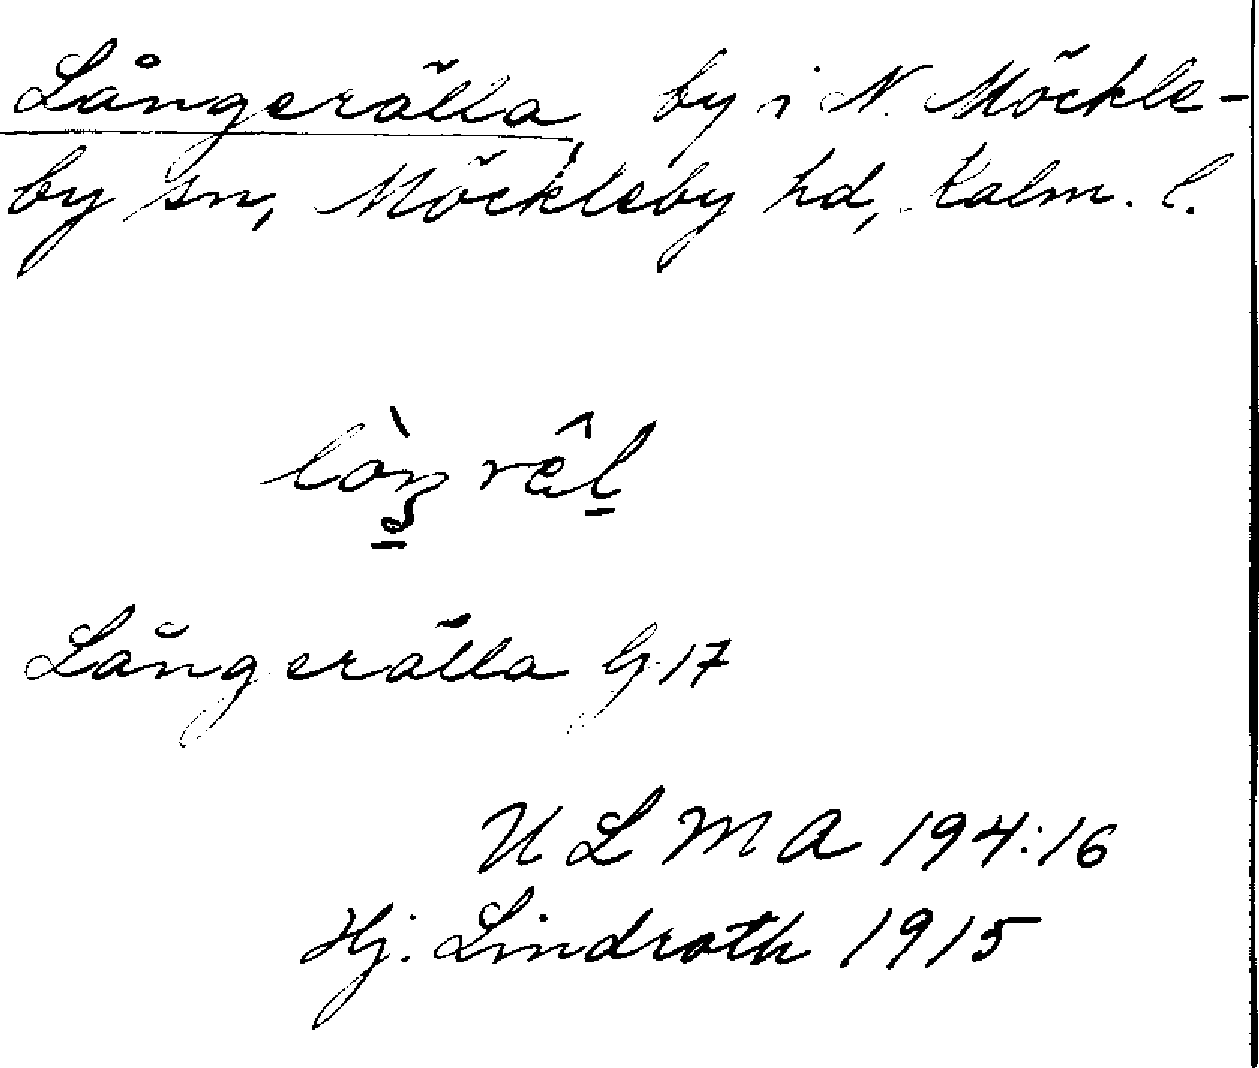 Långerälla, by i N. Möckle-
by sn, Möckleby hd, Kalm. l.
Långerälla G. 17
ULMA 194:16
Hj. Lindroth 1915